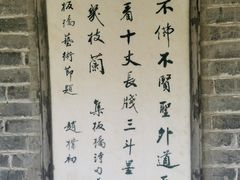 不佛不賢聖外道天
看十丈長牋三斗墨
數枝蘭
集板橋詩句
板橋藝術節題
趙樸初